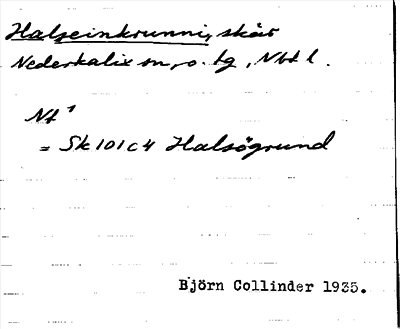 Halseinkrunni, skär
Nederkalix sn, o. tg, Nbtl.
Nt¹
= Sk101c4 Halsögrund
Björn Collinder 1935.